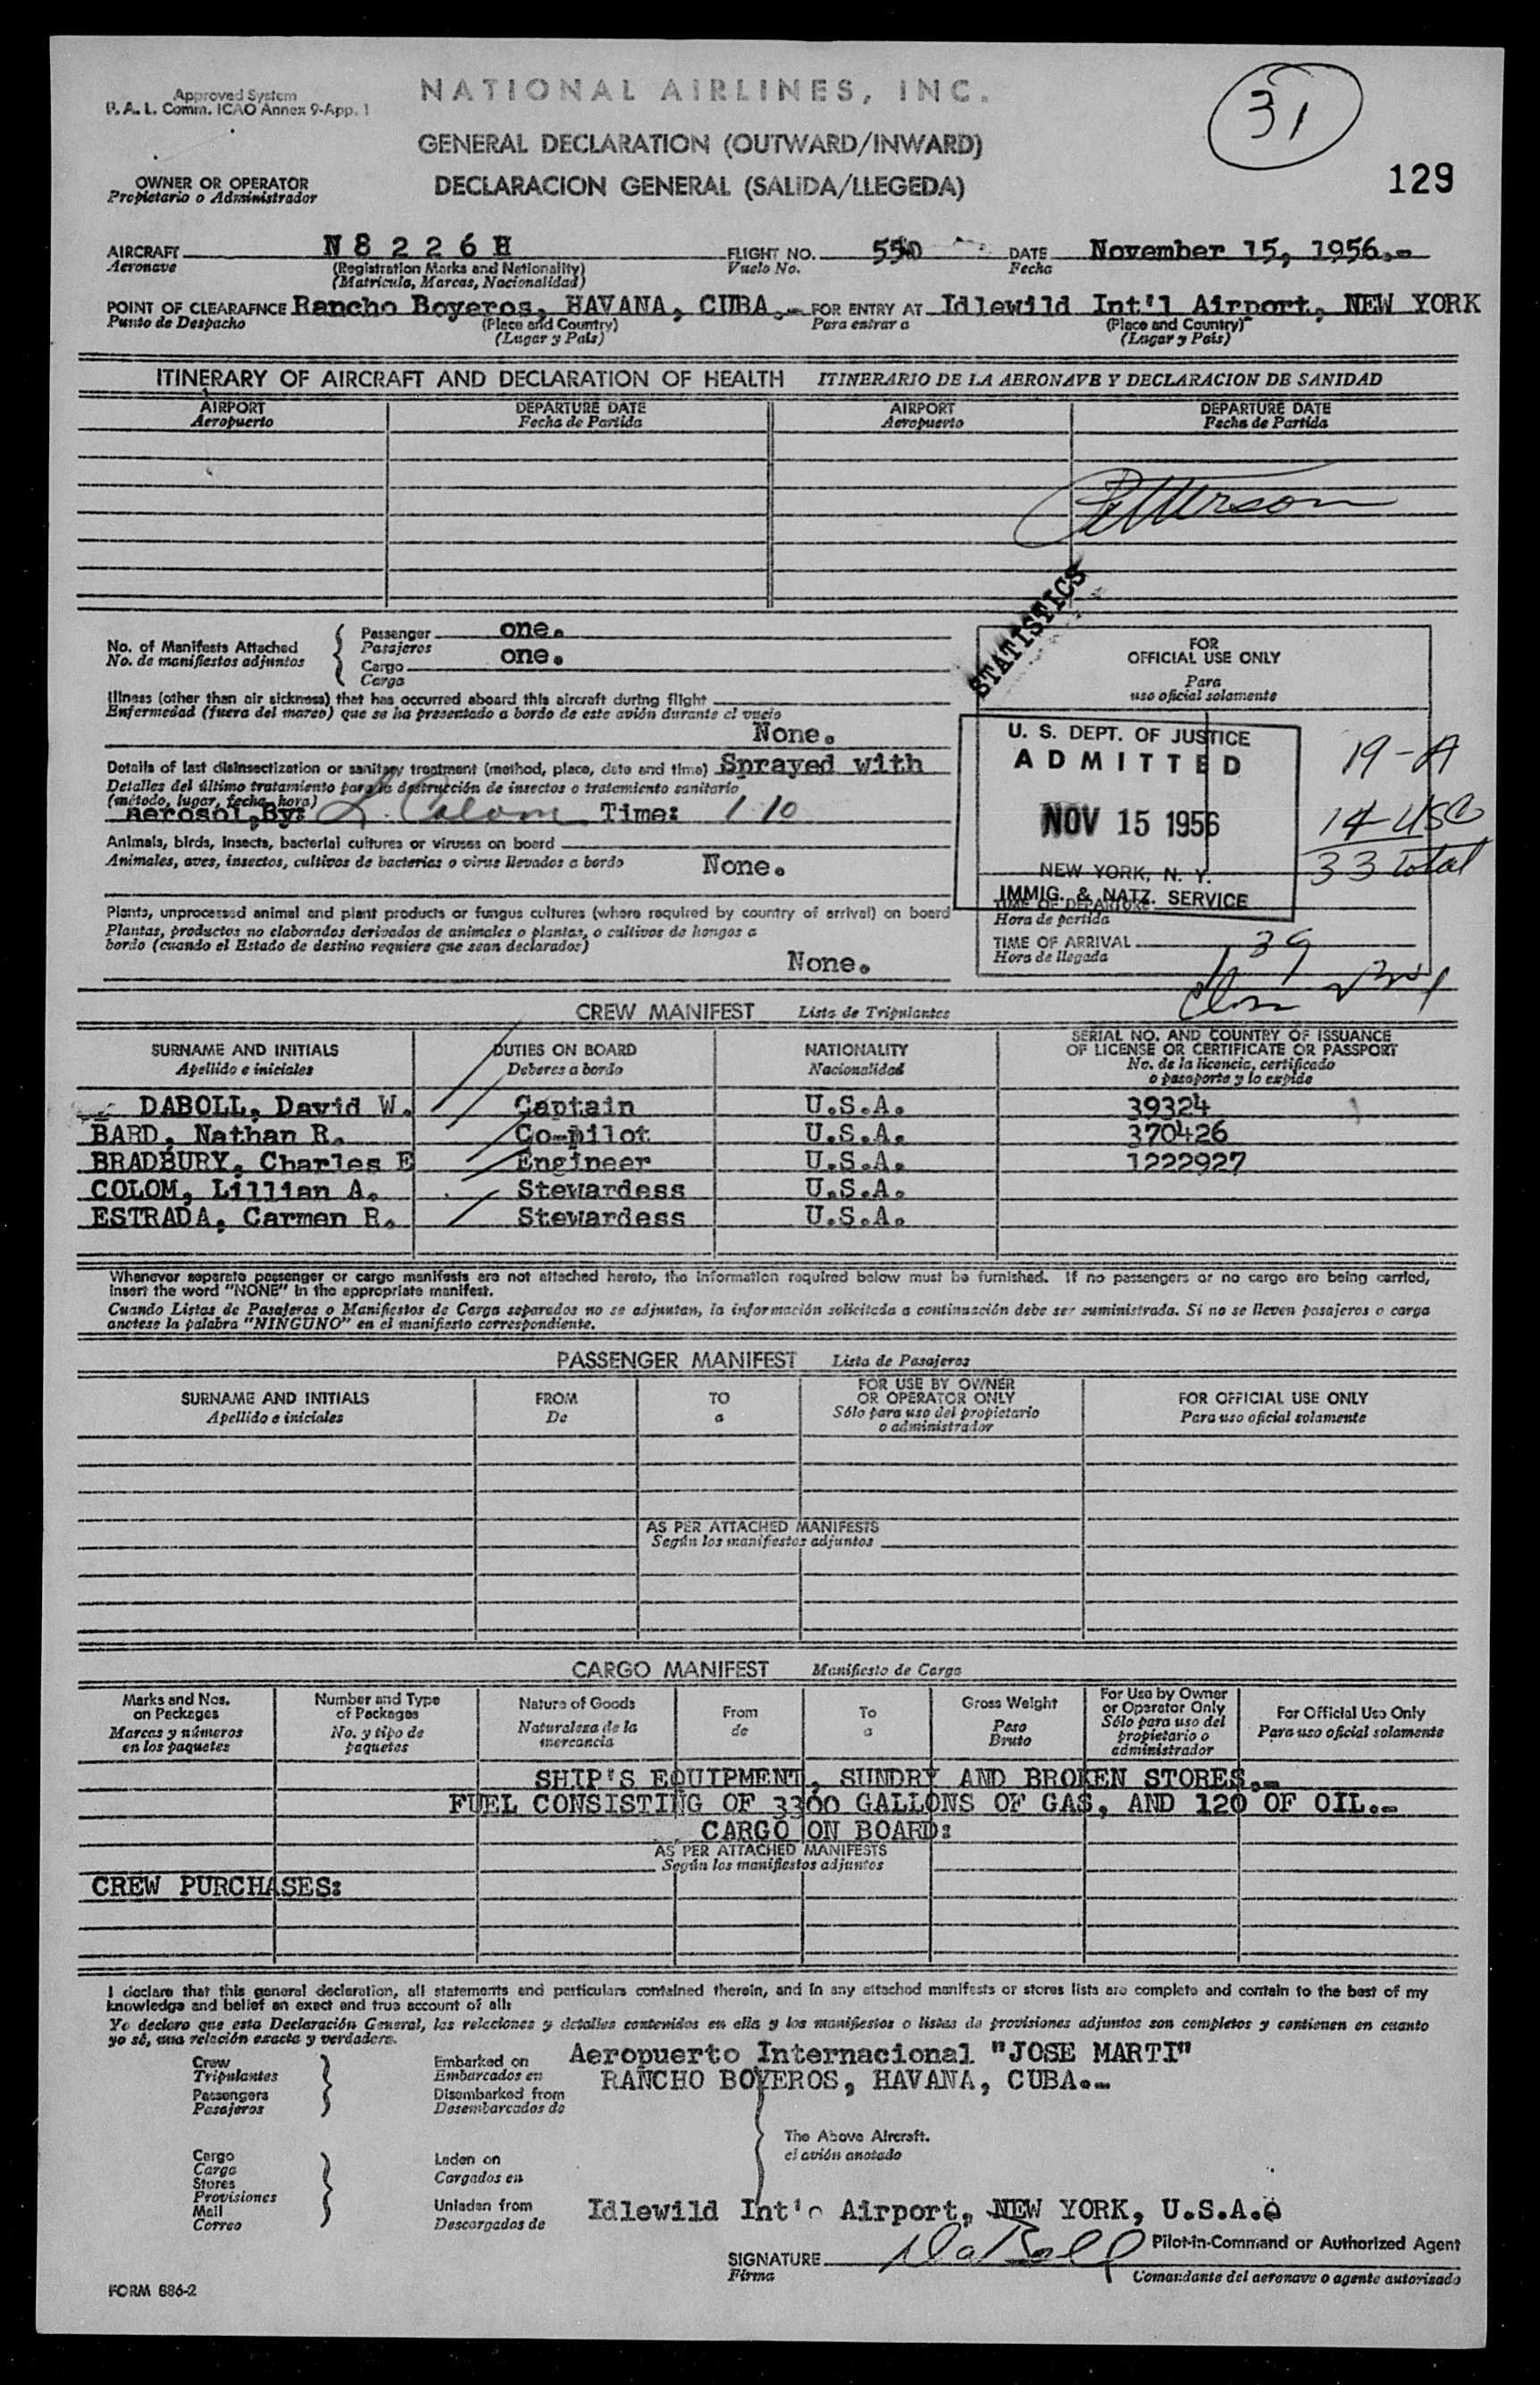 Approved System
P. A. L. Comm. ICAO Annex 9-App. 1
NATIONAL AIRLINES, INC.
31
GENERAL DECLARATION (OUTWARD/INWARD)
DECLARACION GENERAL (SALIDA/LLEGEDA)
129
OWNER OR OPERATOR
Propietario o Administrador
AIRCRAFT N 8 2 2 6 H FLIGHT NO. 550 DATE November 15, 1956.-
Aeronave (Registration Marks and Nationality) Vuelo No. Fecha
(Matricula, Marcas, Nacionalidad)
POINT OF CLEARAFNCE Rancho Boyeros, HAVANA, CUBA.- FOR ENTRY AT Idlewild Int'l Airport, NEW YORK
Punto de Despacho (Place and Country) Para entrar a (Place and Country)
(Lugar y País) (Lugar y País)
ITINERARY OF AIRCRAFT AND DECLARATION OF HEALTH ITINERARIO DE LA AERONAVE Y DECLARACION DE SANIDAD
AIRPORT DEPARTURE DATE AIRPORT DEPARTURE DATE
Aeropuerto Fecha de Partida Aeropuerto Fecha de Partida
Petterson
STATISTICS
No. of Manifests Attached
No. de manifiestos adjuntos
Passenger one.
Pasajeros
Cargo one.
Carga
FOR
OFFICIAL USE ONLY
Para
uso oficial solamente
Illness (other than air sickness) that has occurred aboard this aircraft during flight
Enfermedad (fuera del mareo) que se ha presentado a bordo de este avión durante el vuelo
None.
U. S. DEPT. OF JUSTICE
ADMITTED
NOV 15 1956
NEW YORK, N. Y.
IMMIG. & NATZ. SERVICE
19-A
14 USC
33 total
Details of last disinsectization or sanitary treatment (method, place, date and time) Sprayed with
Detalles del último tratamiento para la destrucción de insectos o tratamiento sanitario
(método, lugar, fecha, hora)
aerosol,By: L. Colom Time: 1 10
Animals, birds, insects, bacterial cultures or viruses on board
Animales, aves, insectos, cultivos de bacterias o virus llevados a bordo None.
Plants, unprocessed animal and plant products or fungus cultures (where required by country of arrival) on board
Plantas, productos no elaborados derivados de animales o plantas, o cultivos de hongos a
bordo (cuando el Estado de destino requiere que sean declarados)
None.
TIME OF DEPARTURE
Hora de partida
TIME OF ARRIVAL
Hora de llegada
CREW MANIFEST Lista de Tripulantes
SURNAME AND INITIALS DUTIES ON BOARD NATIONALITY SERIAL NO. AND COUNTRY OF ISSUANCE
OF LICENSE OR CERTIFICATE OR PASSPORT
Apellido e iniciales Deberes a bordo Nacionalidad No. de la licencia, certificado
o pasaporte y lo expide
DABOLL, David W. Captain U.S.A. 39324
BARD, Nathan R. Co-pilot U.S.A. 370426
BRADBURY, Charles E Engineer U.S.A. 1222927
COLOM, Lillian A. Stewardess U.S.A.
ESTRADA, Carmen R. Stewardess U.S.A.
Whenever separate passenger or cargo manifests are not attached hereto, the information required below must be furnished. If no passengers or no cargo are being carried,
insert the word "NONE" in the appropriate manifest.
Cuando Listas de Pasajeros o Manifiestos de Carga separados no se adjuntan, la información solicitada a continuación debe ser suministrada. Si no se lleven pasajeros o carga
anotese la palabra "NINGUNO" en el manifiesto correspondiente.
PASSENGER MANIFEST Lista de Pasajeros
SURNAME AND INITIALS FROM TO FOR USE BY OWNER
OR OPERATOR ONLY FOR OFFICIAL USE ONLY
Apellido e iniciales De a Sólo para uso del propietario
o administrador Para uso oficial solamente
AS PER ATTACHED MANIFESTS
Según los manifiestos adjuntos
CARGO MANIFEST Manifiesto de Carga
Marks and Nos.
on Packages
Marcas y números
en los paquetes
Number and Type
of Packages
No. y tipo de
paquetes
Nature of Goods
Naturaleza de la
mercancia
From
de
To
a
Gross Weight
Peso
Bruto
For Use by Owner
or Operator Only
Sólo para uso del
propietario o
administrador
For Official Use Only
Para uso oficial solamente
SHIP'S EQUIPMENT, SUNDRY AND BROKEN STORES.-
FUEL CONSISTING OF 3300 GALLONS OF GAS, AND 120 OF OIL.-
CARGO ON BOARD:
AS PER ATTACHED MANIFESTS
Según los manifiestos adjuntos
CREW PURCHASES:
I declare that this general declaration, all statements and particulars contained therein, and in any attached manifests or stores lists are complete and contain to the best of my
knowledge and belief an exact and true account of all:
Yo declaro que esta Declaración General, las relaciones y detalles contenidos en ella y los manifiestos o listas de provisiones adjuntos son completos y contienen en cuanto
yo sé, una relación exacta y verdadera.
Crew
Tripulantes
Passengers
Pasajeros
Embarked on
Embarcados en
Disembarked from
Desembarcados de
Aeropuerto Internacional "JOSE MARTI"
RANCHO BOYEROS, HAVANA, CUBA.-
The Above Aircraft.
el avión anotado
Cargo
Carga
Stores
Provisiones
Mail
Correo
Laden on
Cargados en
Unladen from
Descargados de
Idlewild Int' Airport, NEW YORK, U.S.A.
SIGNATURE DaBoll Pilot-in-Command or Authorized Agent
Firma Comandante del aeronave o agente autorizado
FORM 886-2